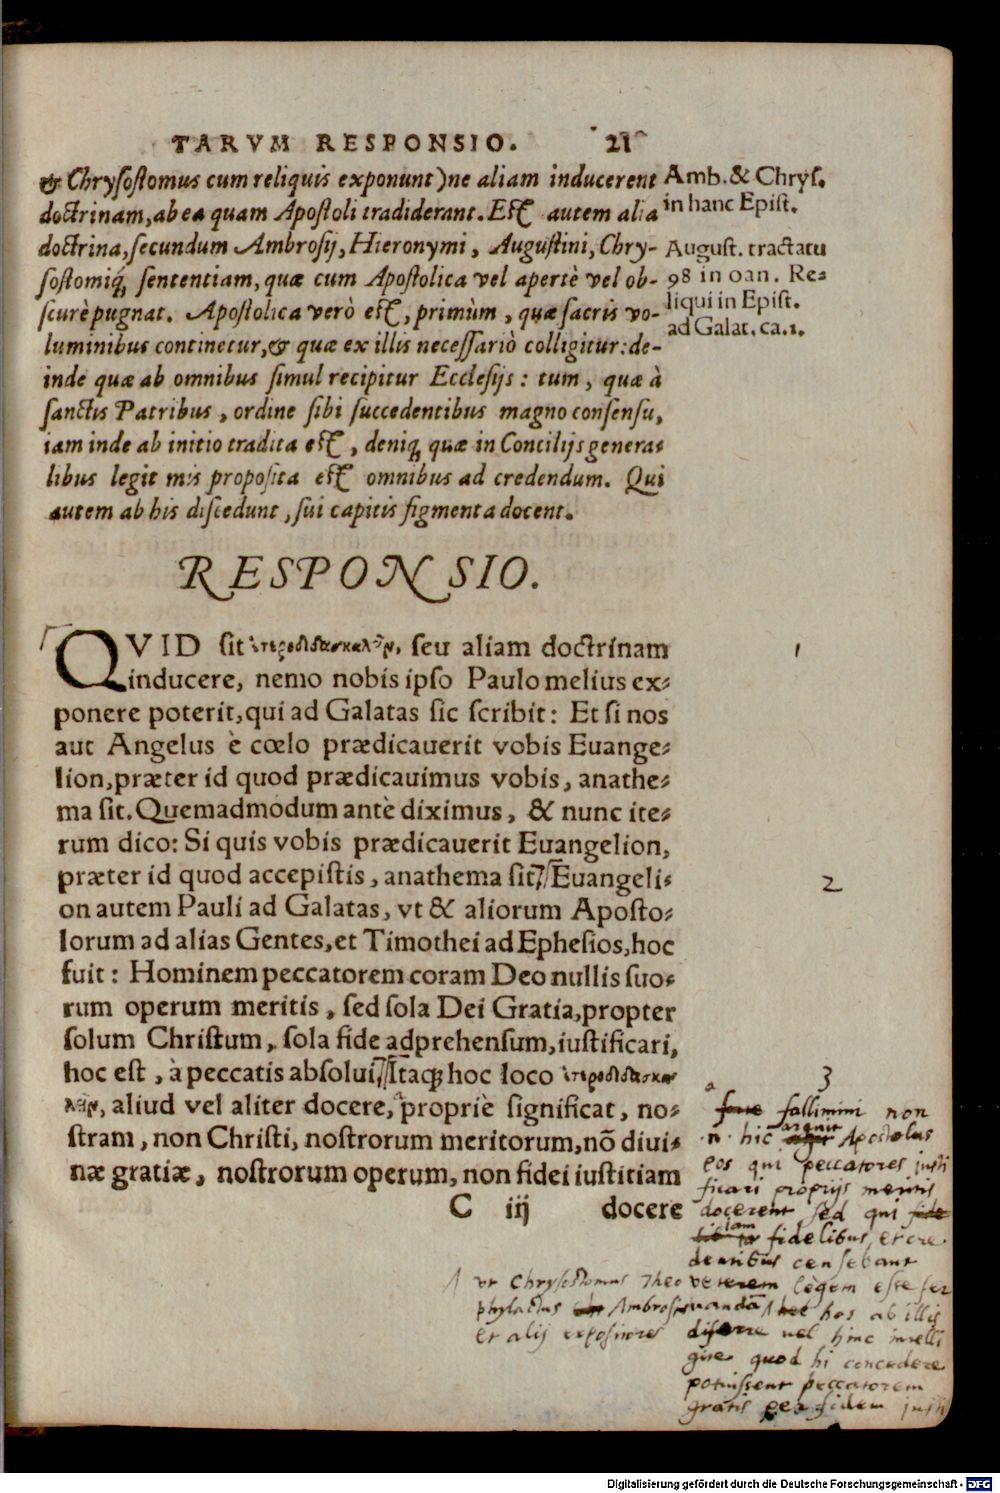 TARVM RESPONSIO. 21
& Chrysostomus cum reliquis exponunt) ne aliam inducerent
doctrinam, ab ea quam Apostoli tradiderant. Est autem alia
doctrina, secundum Ambrosij, Hieronymi, Augustini, Chry-
sostomiq́, sententiam, quæ cum Apostolica vel apertè vel ob-
scurè pugnat. Apostolica verò est, primùm, quæ sacris vo-
luminibus continetur, & quæ ex illis necessariò colligitur: de-
inde quæ ab omnibus simul recipitur Ecclesijs: tum, quæ à
sanctis Patribus, ordine sibi succedentibus magno consensu,
iam inde ab initio tradita est, deniq́, quæ in Concilijs genera-
libus legit mis proposita est omnibus ad credendum. Qui
autem ab his discedunt, sui capitis figmenta docent.
Amb. & Chrys.
in hanc Epist.
August. tractatu
98 in oan. Re-
liqui in Epist.
ad Galat. ca. 1.
RESPONSIO.
QVID sit ἑτεροδιδασκαλεῖν, seu aliam doctrinam
inducere, nemo nobis ipso Paulo melius ex-
ponere poterit, qui ad Galatas sic scribit: Et si nos
aut Angelus è cœlo prædicauerit vobis Euange-
lion, præter id quod prædicauimus vobis, anathe-
ma sit. Quemadmodum antè diximus, & nunc ite-
rum dico: Si quis vobis prædicauerit Euangelion,
præter id quod accepistis, anathema sit. Euangeli-
on autem Pauli ad Galatas, vt & aliorum Aposto-
lorum ad alias Gentes, et Timothei ad Ephesios, hoc
fuit: Hominem peccatorem coram Deo nullis suo-
rum operum meritis, sed sola Dei Gratia, propter
solum Christum, sola fide adprehensum, iustificari,
hoc est, à peccatis absolui. Itaq; hoc loco ἑτεροδιδασκα
λεῖν, aliud vel aliter docere, propriè significat, no-
stram, non Christi, nostrorum meritorum, nõ diui-
næ gratiæ, nostrorum operum, non fidei iustitiam
C iij docere
1
2
3
a
fallimini non
n. hic arguit Apostolus
eos qui peccatores justi
ficari proprijs meritis
docerent sed qui
iam fidelibus, et cre
dentibus censebant
veterem legem esse ser
vandā hos ab illis
differre vel hinc intelli
gite quod hi concedere
potuissent peccatorem
gratis per fidem justi
ut Chrysostomus Theo
phylactus Ambrosius
et alij expositores
Digitalisierung gefördert durch die Deutsche Forschungsgemeinschaft - DFG